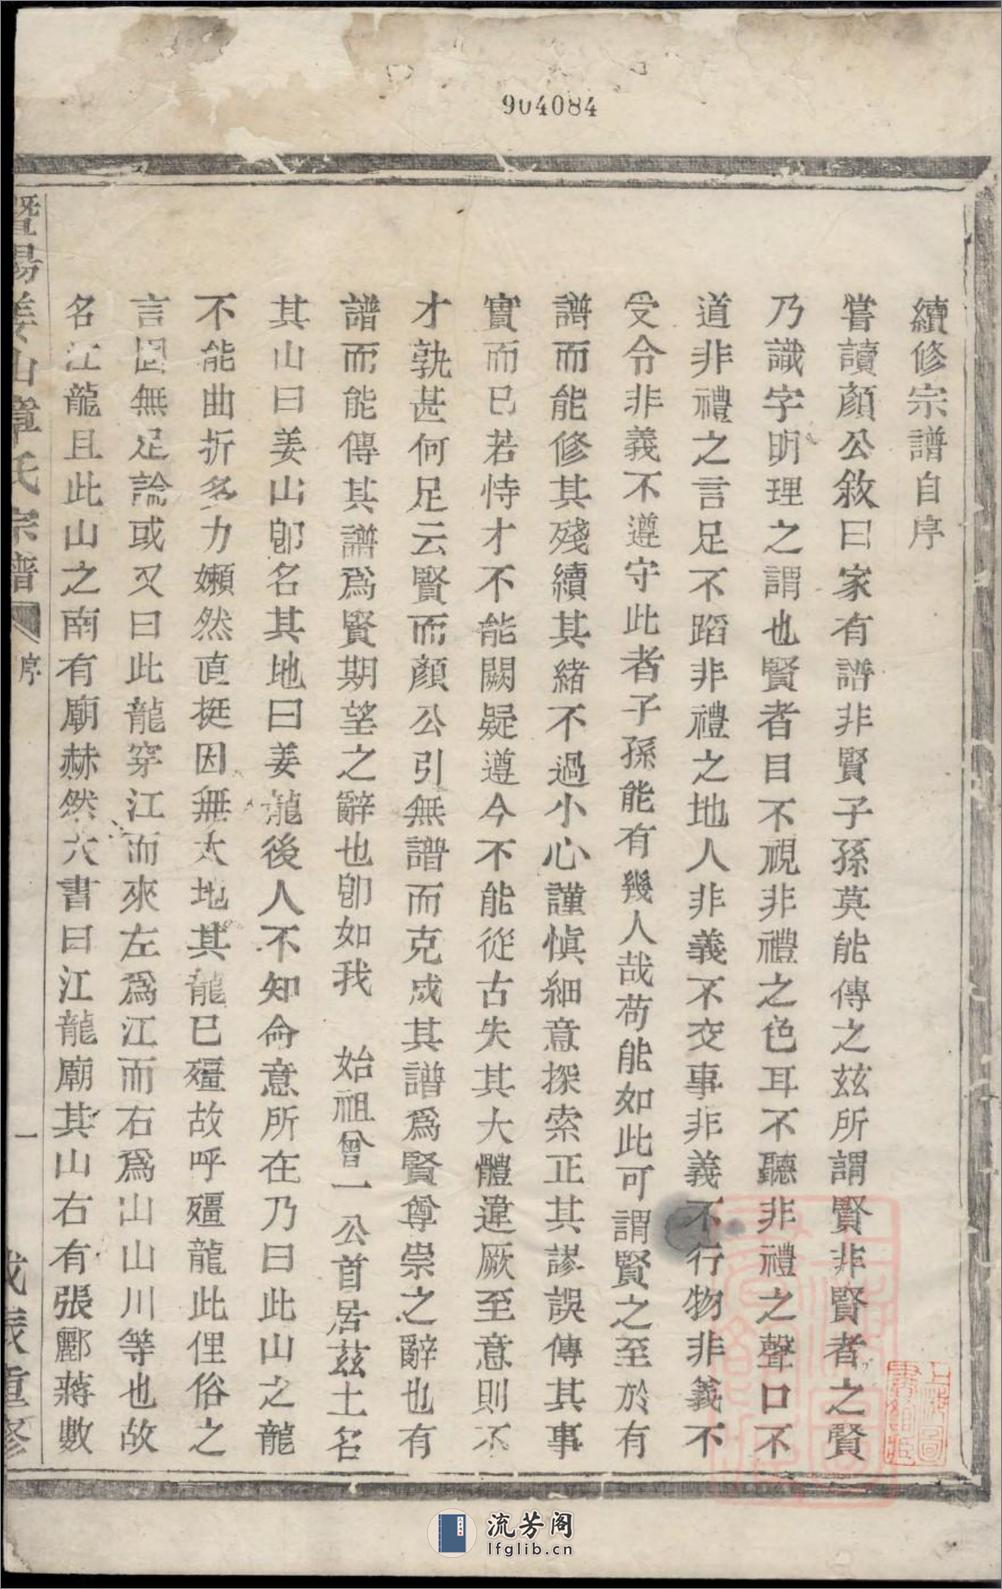 904084
續修宗譜自序
嘗讀顏公敘曰家有譜非賢子孫莫能傳之茲所謂賢非賢者之賢
乃識字明理之謂也賢者目不視非禮之色耳不聽非禮之聲口不
道非禮之言足不蹈非禮之地人非義不交事非義不行物非義不
受令非義不遵守此者子孫能有幾人哉苟能如此可謂賢之至於有
譜而能修其殘續其緒不過小心謹愼細意探索正其謬誤傳其事
實而已若恃才不能闕疑遵今不能從古失其大體違厥至意則不
才孰甚何足云賢而顏公引無譜而克成其譜爲賢尊崇之辭也有
譜而能傳其譜爲賢期望之辭也卽如我 始祖曾一公首居茲土名
其山曰姜山卽名其地曰姜龍後人不知命意所在乃曰此山之龍
不能曲折多力嬾然直挺因無大地其龍已殭故呼殭龍此俚俗之
言固無足論或又曰此龍穿江而來左爲江而右爲山山川等也故
名江龍且此山之南有廟赫然大書曰江龍廟其山右有張酈蔣數
暨陽姜山章氏宗譜 序 一 戊辰重修
上海圖書館藏
流芳阁
lfglib.cn